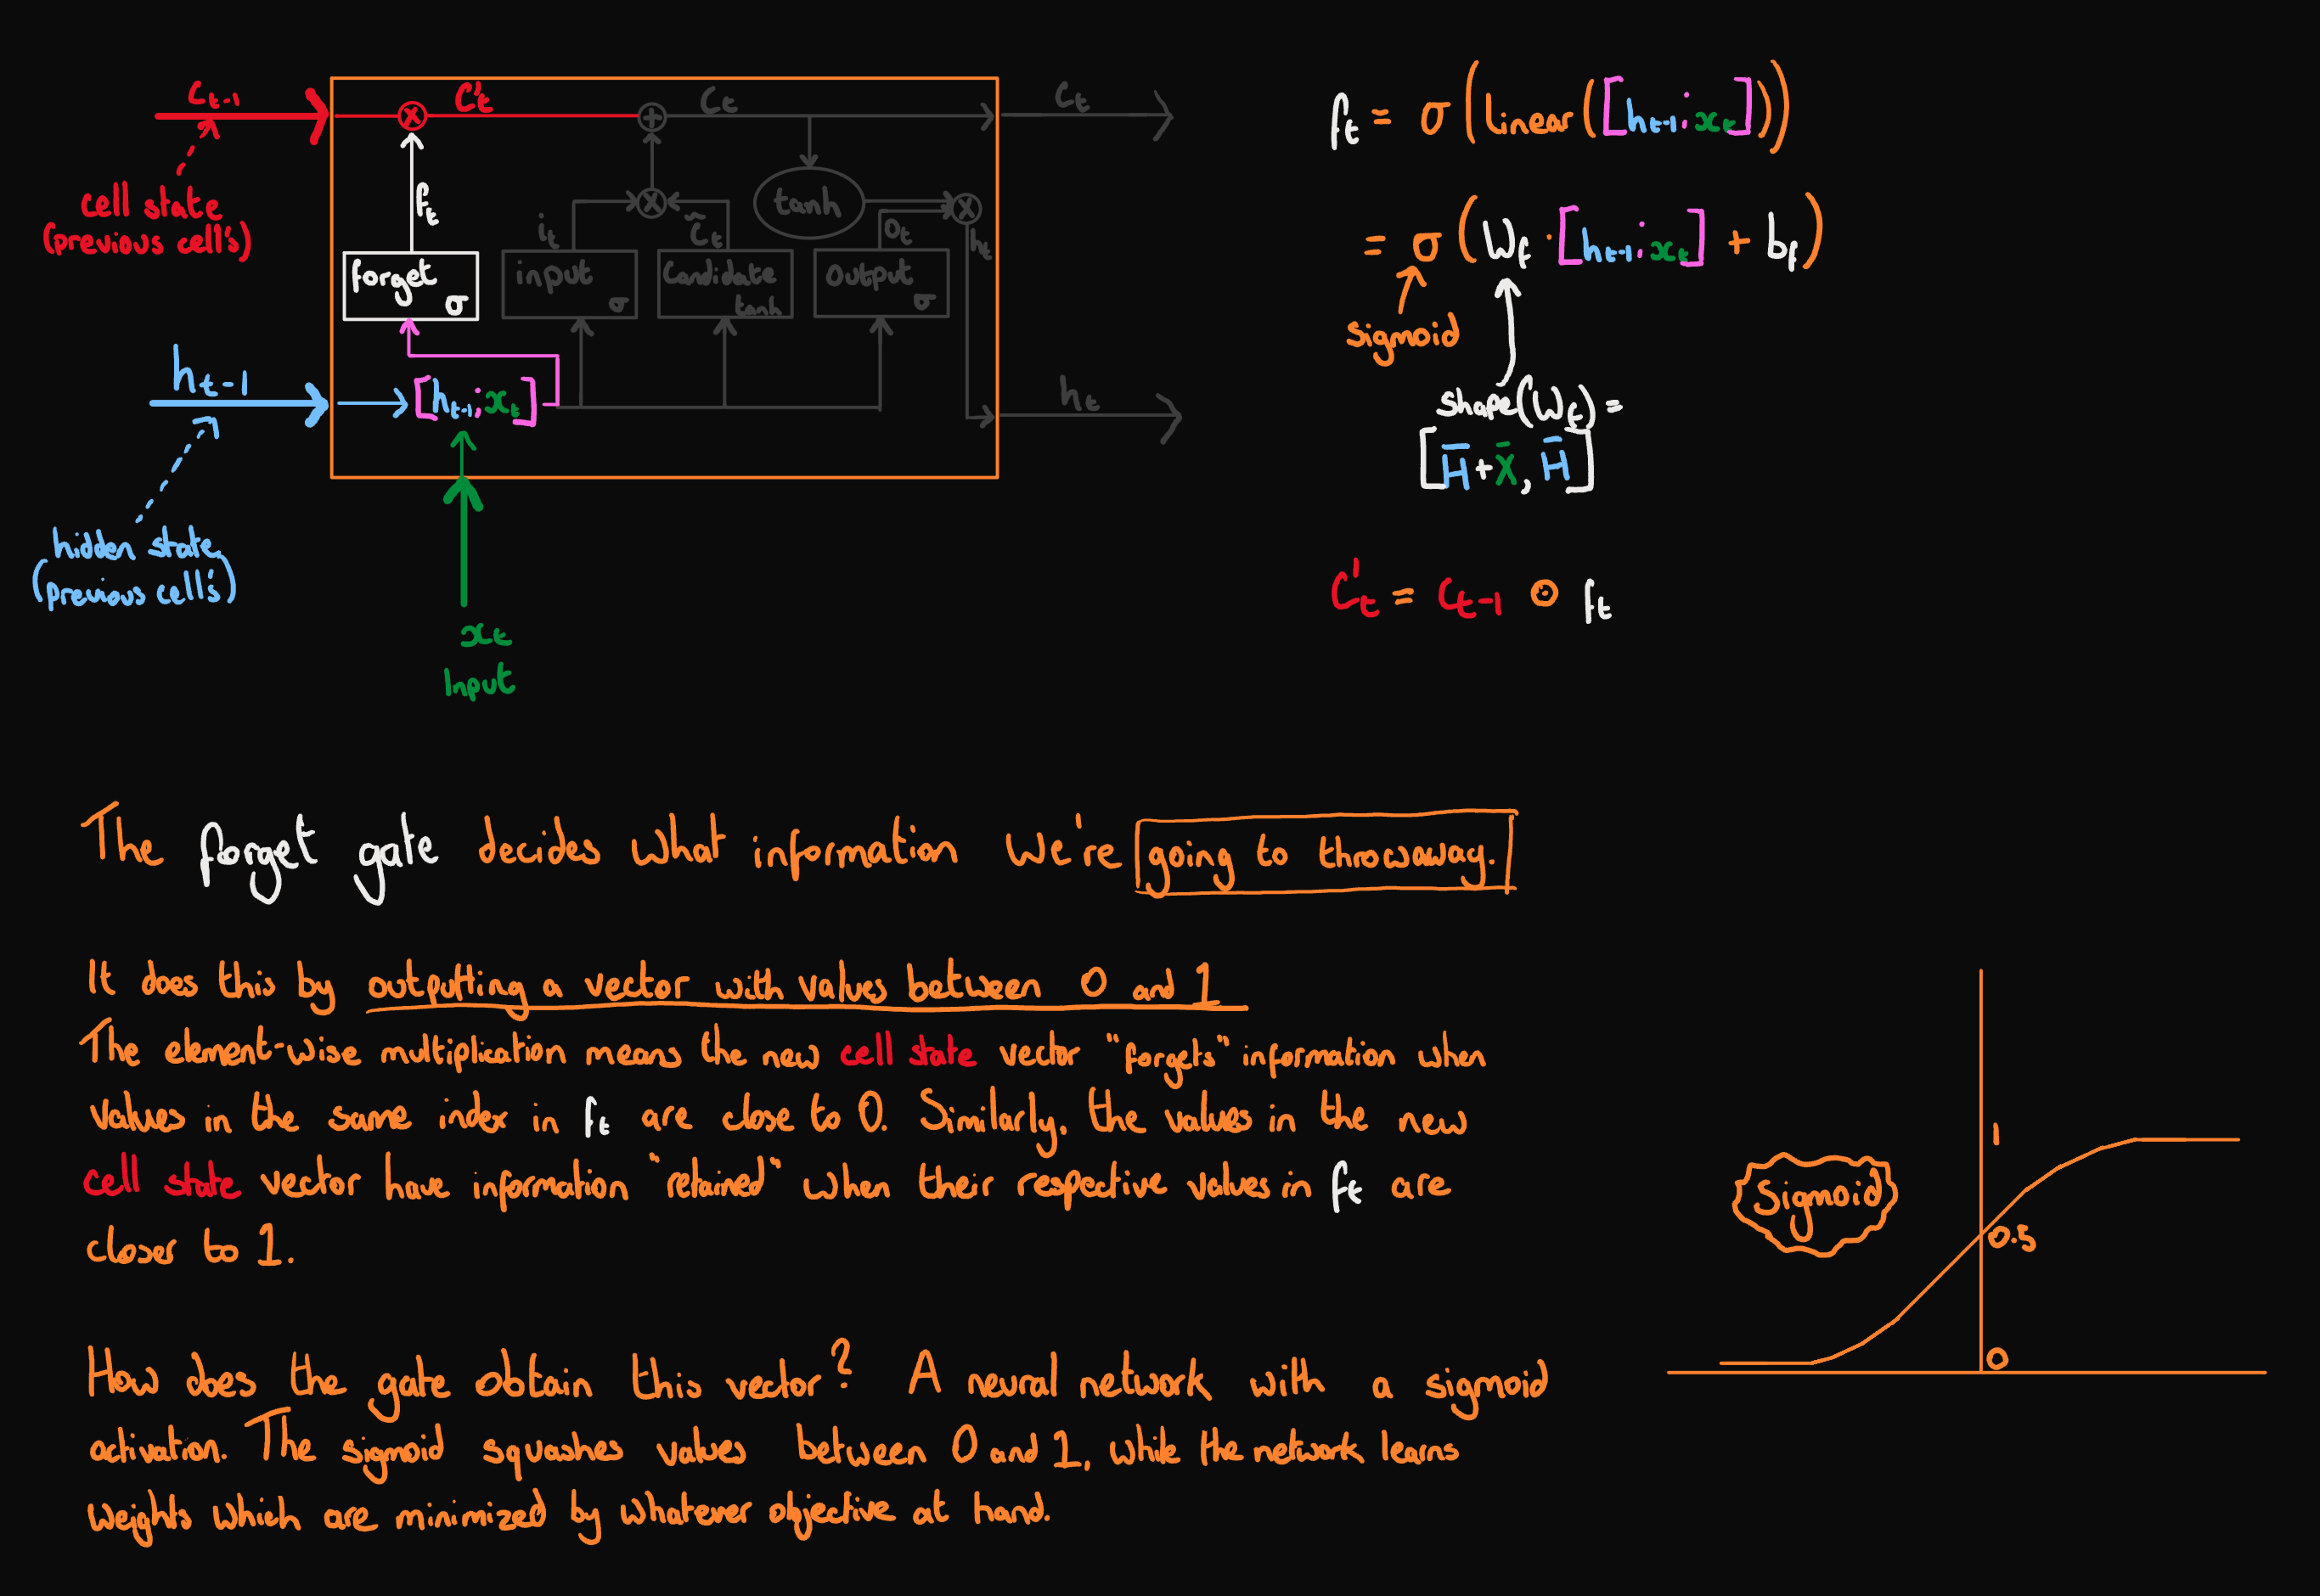 c_{t-1}
C'_t
C_t
C_t
cell state
(previous cell's)
f_t
i_t
c̃_t
tanh
o_t
h_t
forget
σ
input
σ
Candidate
tanh
Output
σ
h_{t-1}
[h_{t-1}; x_t]
h_t
hidden state
(previous cell's)
x_t
Input
f_t = σ(Linear([h_{t-1}; x_t]))
= σ(W_f · [h_{t-1}; x_t] + b_f)
sigmoid
shape(W_f) =
[H̄ + X̄, H̄]
C'_t = C_{t-1} ⊙ f_t
The forget gate decides what information we're going to throwaway.
It does this by outputting a vector with values between 0 and 1
The element-wise multiplication means the new cell state vector "forgets" information when
values in the same index in f_t are close to 0. Similarly, the values in the new
cell state vector have information "retained" when their respective values in f_t are
closer to 1.
How does the gate obtain this vector? A neural network with a sigmoid
activation. The sigmoid squashes values between 0 and 1, while the network learns
weights which are minimized by whatever objective at hand.
Sigmoid
1
0.5
0